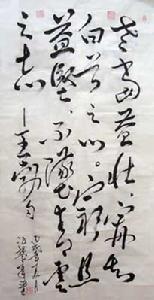 老當益壮寧知
白首之心窮且
益堅不墜青雲
之志—王勃句